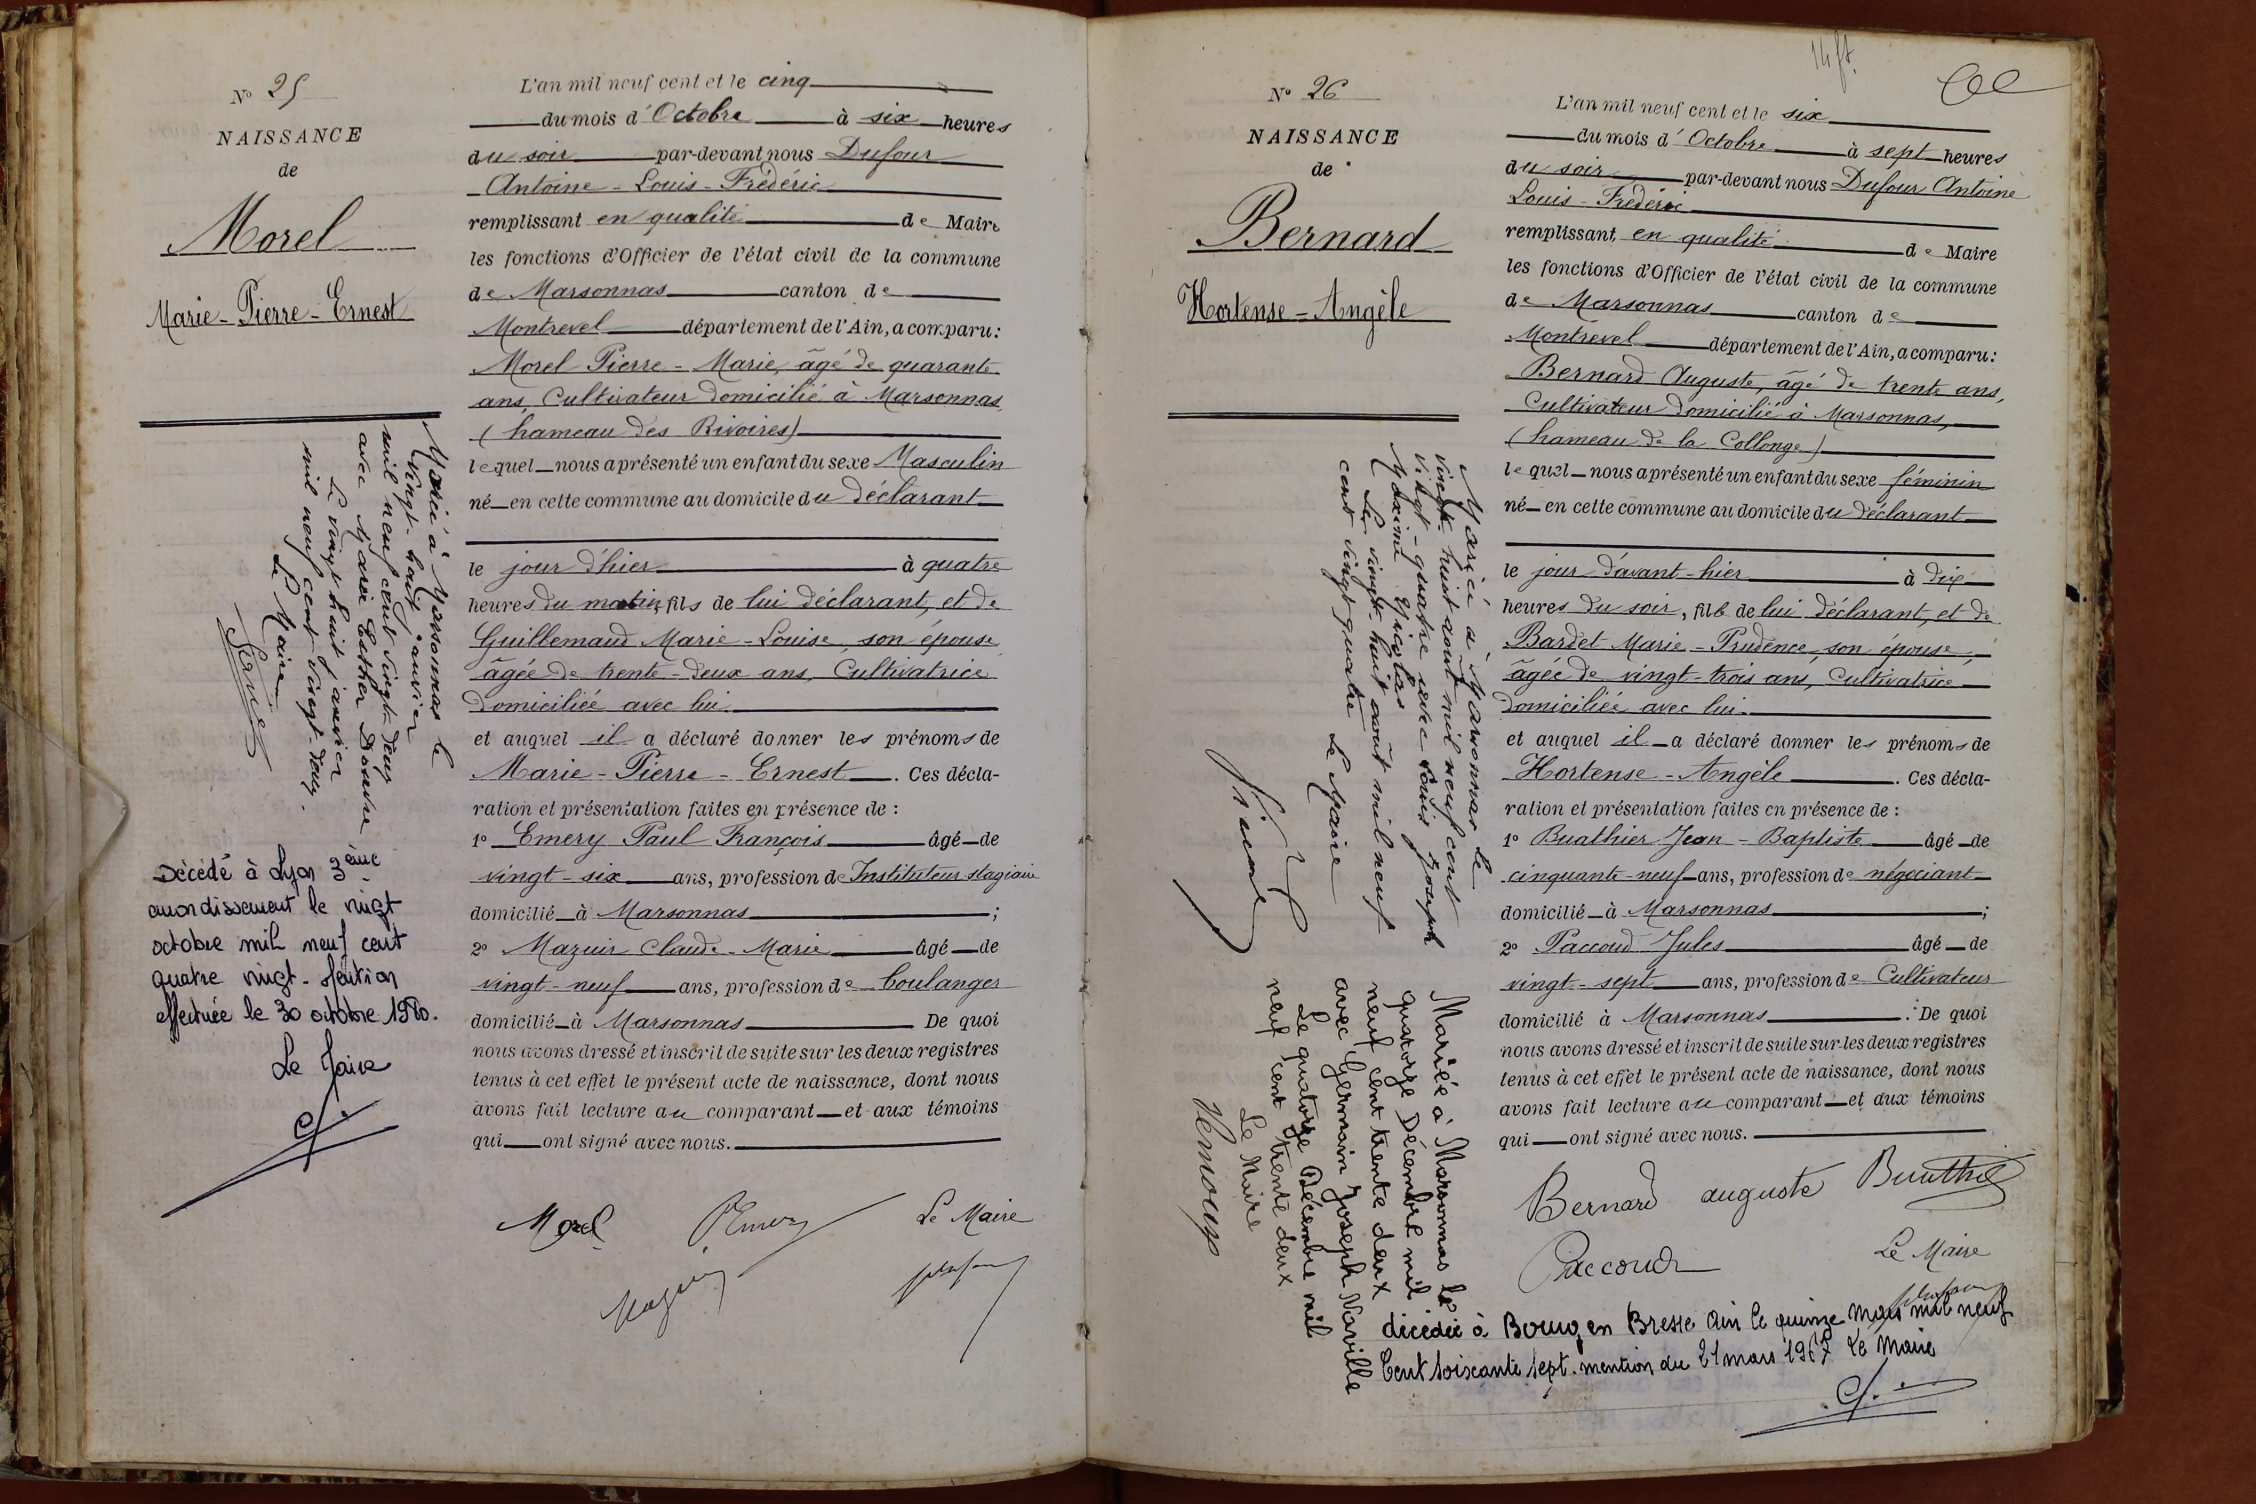 N° 25
NAISSANCE
de
Morel
Marie-Pierre-Ernest
Marié à Marsonnas le
vingt-huit janvier
mil neuf cent vingt-deux
avec Marie Esther Douvre
Le vingt huit janvier
mil neuf cent vingt-deux.
Le Maire
Décédé à Lyon 3ème
arrondissement le vingt
octobre mil neuf cent
quatre vingt. Mention
effectuée le 30 octobre 1980.
Le Maire
L'an mil neuf cent et le cinq
du mois d'Octobre à six heures
du soir par-devant nous Dufour
Antoine-Louis-Frédéric
remplissant en qualité de Maire
les fonctions d'Officier de l'état civil de la commune
de Marsonnas canton de
Montrevel département de l'Ain, a comparu:
Morel Pierre-Marie, âgé de quarante
ans, Cultivateur domicilié à Marsonnas
(hameau des Rivoires)
lequel nous a présenté un enfant du sexe Masculin
né en cette commune au domicile du déclarant
le jour d'hier à quatre
heures du matin, fils de lui déclarant, et de
Guillemaud Marie-Louise, son épouse
âgée de trente-deux ans, Cultivatrice
domiciliée avec lui.
et auquel il a déclaré donner les prénoms de
Marie-Pierre-Ernest. Ces décla-
ration et présentation faites en présence de :
1° Emery Paul François âgé de
vingt-six ans, profession de Instituteur stagiaire
domicilié à Marsonnas ;
2° Mazuir Claude-Marie âgé de
vingt-neuf ans, profession de boulanger
domicilié à Marsonnas De quoi
nous avons dressé et inscrit de suite sur les deux registres
tenus à cet effet le présent acte de naissance, dont nous
avons fait lecture au comparant et aux témoins
qui ont signé avec nous.
Morel P. Emery Le Maire
Mazuir
14 ft.
N° 26
NAISSANCE
de
Bernard
Hortense-Angèle
Mariée à Marsonnas le
vingt-huit août mil neuf cent
vingt-quatre avec Louis Joseph
Maxime Nicolas
Le vingt-huit août mil neuf
cent vingt quatre Le Maire
Mariée à Marsonnas le
quatorze Décembre mil
neuf cent trente deux
avec Germain Joseph Narville
Le quatorze Décembre mil
neuf cent trente deux
Le Maire
L'an mil neuf cent et le six
du mois d'Octobre à sept heures
du soir par-devant nous Dufour Antoine
Louis-Frédéric
remplissant en qualité de Maire
les fonctions d'Officier de l'état civil de la commune
de Marsonnas canton de
Montrevel département de l'Ain, a comparu:
Bernard Auguste, âgé de trente ans,
Cultivateur domicilié à Marsonnas,
(hameau de la Collonge)
lequel nous a présenté un enfant du sexe féminin
né en cette commune au domicile du déclarant
le jour d'avant-hier à dix
heures du soir, fille de lui déclarant, et de
Bardet Marie-Prudence, son épouse,
âgée de vingt-trois ans, Cultivatrice
domiciliée avec lui.
et auquel il a déclaré donner les prénoms de
Hortense-Angèle. Ces décla-
ration et présentation faites en présence de :
1° Buathier Jean-Baptiste âgé de
cinquante-neuf ans, profession de négociant
domicilié à Marsonnas ;
2° Paccoud Jules âgé de
vingt-sept ans, profession de Cultivateur
domicilié à Marsonnas. De quoi
nous avons dressé et inscrit de suite sur les deux registres
tenus à cet effet le présent acte de naissance, dont nous
avons fait lecture au comparant et aux témoins
qui ont signé avec nous.
Bernard auguste Buathier
Paccoud Le Maire
décédée à Bourg en Bresse Ain le quinze mars mil neuf
Cent soixante sept. mention du 21 mars 1967 Le Maire